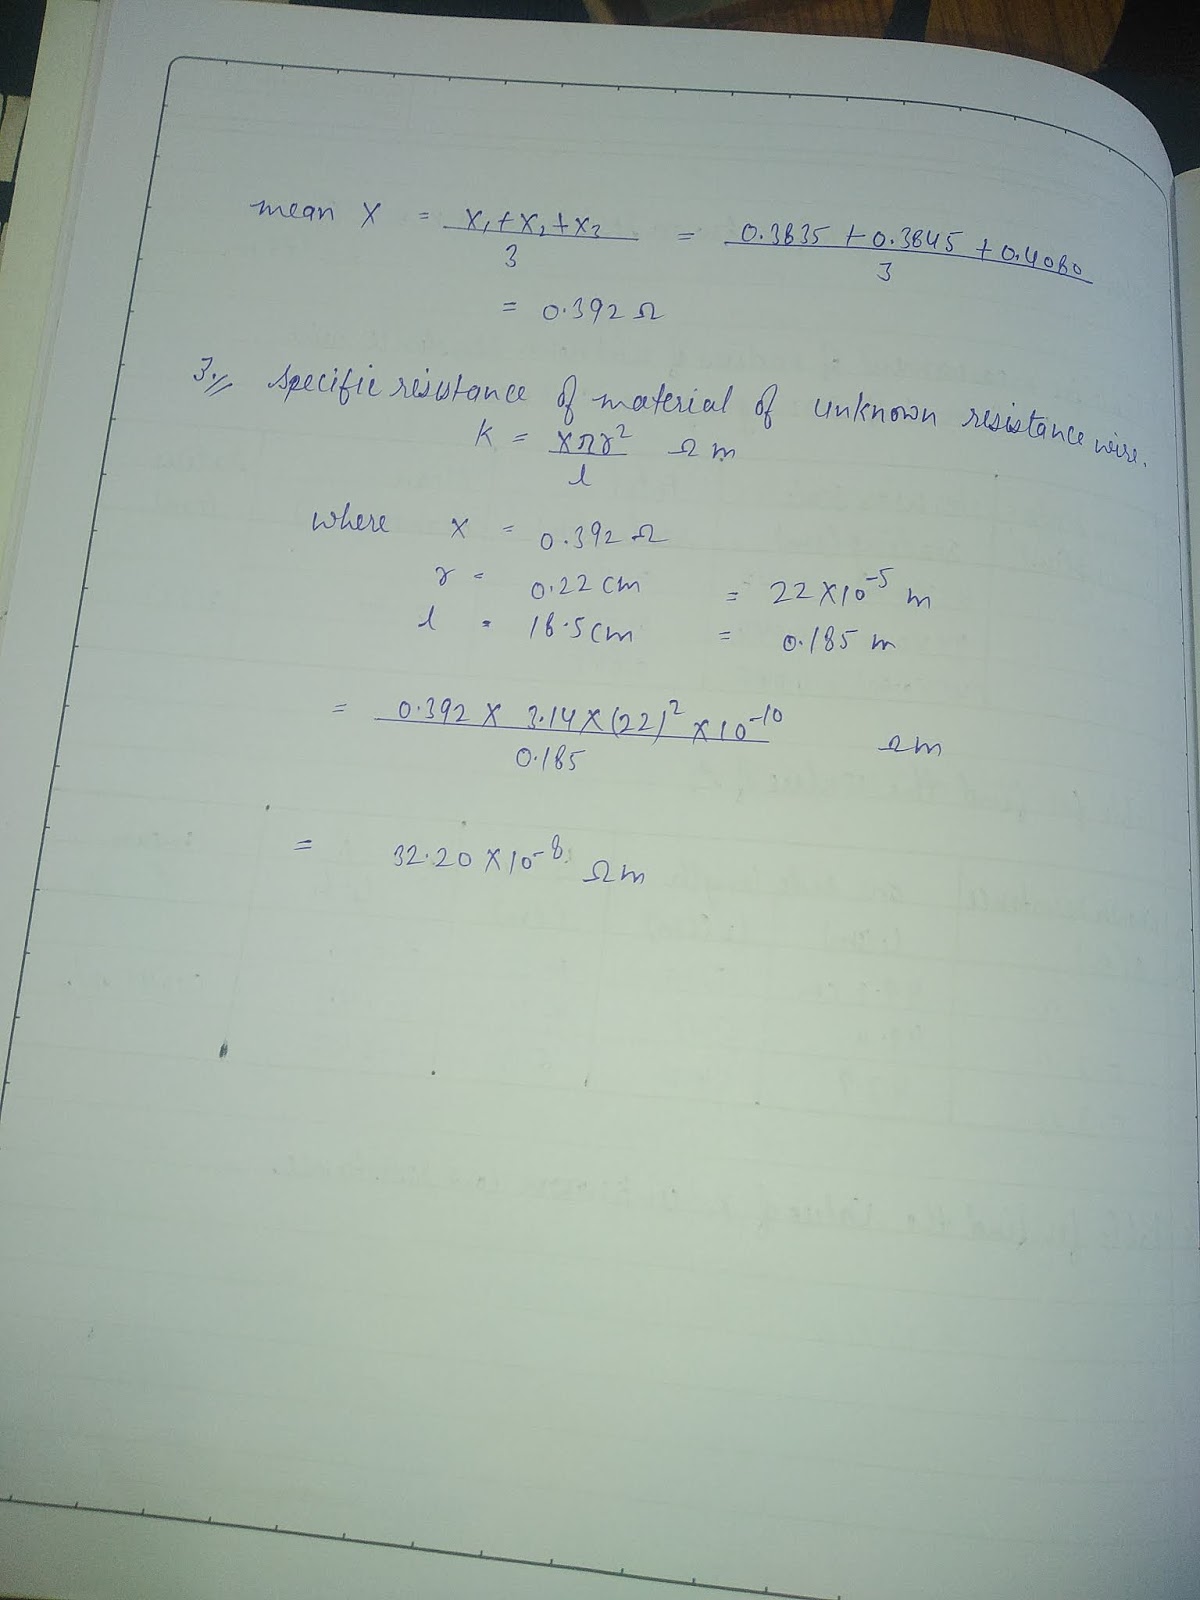 mean X = X₁+X₂+X₃ / 3 = 0.3835 + 0.3845 + 0.4080 / 3
= 0.392 Ω
3.// Specific resistance of material of unknown resistance wire.
K = Xπr² / l Ω m
where X = 0.392 Ω
r = 0.22 cm = 22 X 10⁻⁵ m
l = 18.5 cm = 0.185 m
= 0.392 X 3.14 X (22)² X 10⁻¹⁰ / 0.185 Ω m
= 32.20 X 10⁻⁸ Ω m